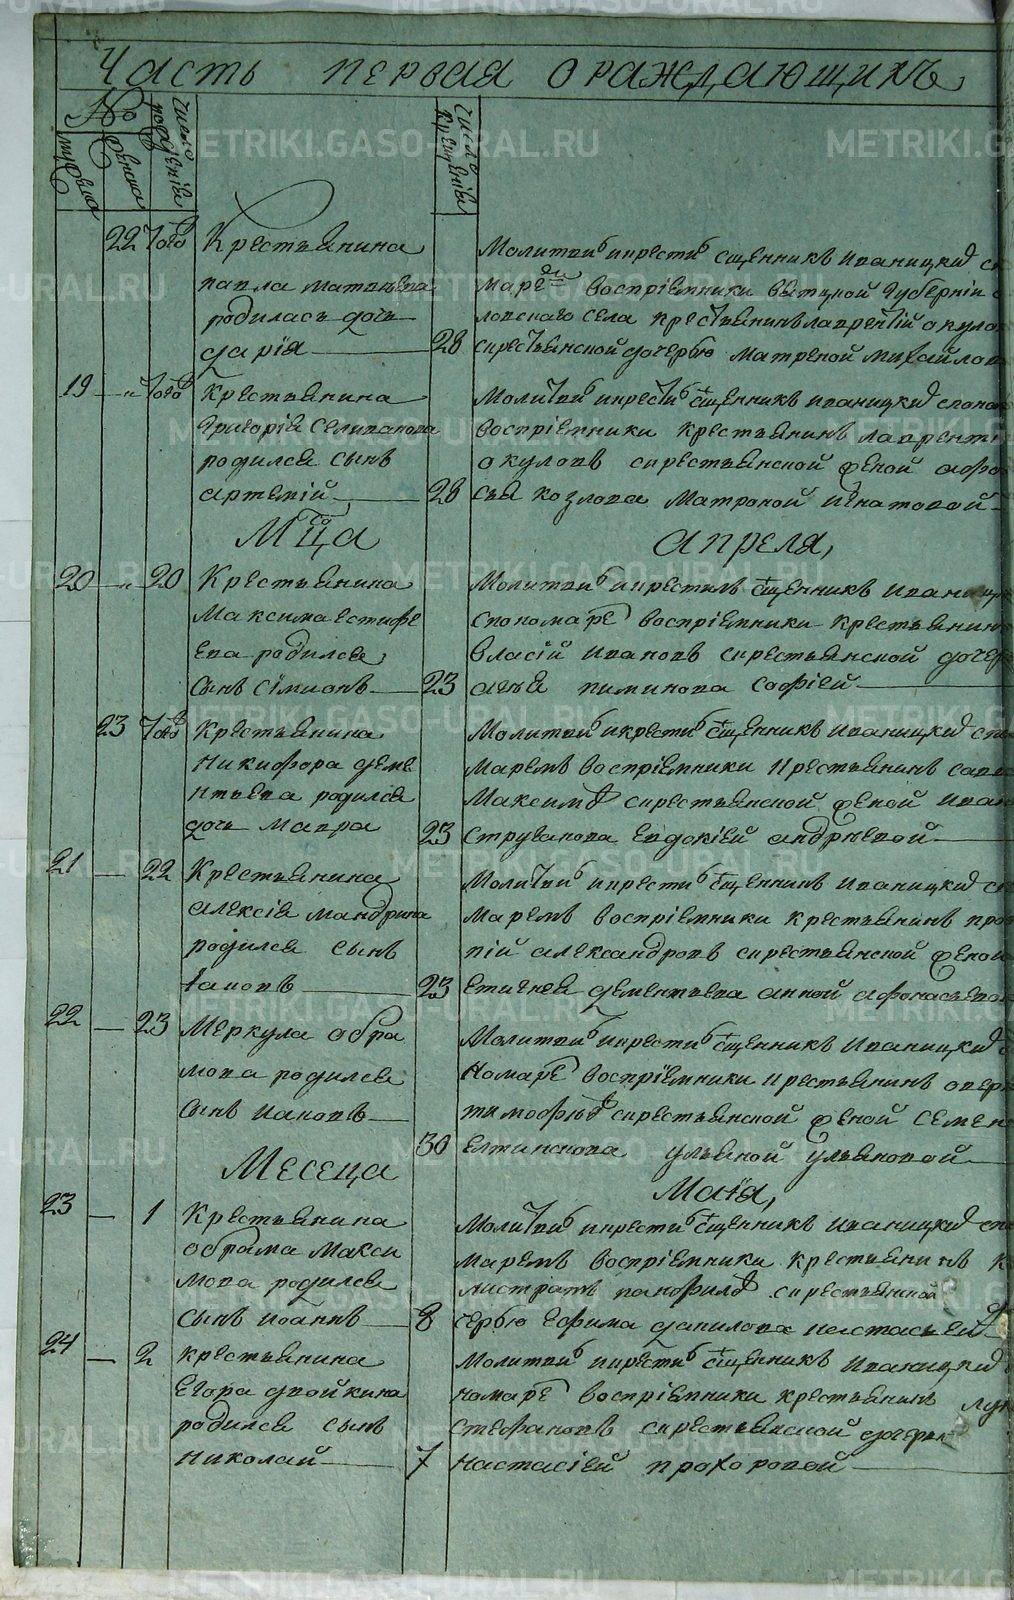 Часть первая о раждающихъ
№
мужеска
женска
число рождения
число крещения
22 Того Крестьянина
павла матвѣева
родилась дочь
дарiя 28
Молитвовъ и крестивъ Сщенникъ иваницкий
маремъ воспрiемники вятцкой губернiи
ловскаго села крестьянинъ лаврентiй окулов
скрестьянской дочерью матреной михайлово
19 Того Крестьянина
Григорiя селиванова
родился сынъ
артемiй 28
Молитвовъ и крестивъ сщенникъ иваницкий спонам
воспрiемники крестьянинъ лаврентi
окуловъ скрестьянской женой афо
сья козлова матроной игнатовой
Мца апреля,
20 20 Крестьянина
Максима естифе
ева родился
сынъ сiмионъ 23
Молитвовъ и крестилъ сщенникъ иваницк
спономаремъ воспрiемники крестьянин
власiй ивановъ скрестьянской дочер
агея пиминова софiей
23 Того Крестьянина
никифора деме
нтьева родился
дочь мавра 23
Молитвовъ и крестивъ сщенникъ иваницкий спо
маремъ воспрiемники крестьянинъ савва
Максимовъ скрестьянской женой иван
стругкова евдокiей андрѣевой
21 22 Крестьянина
алексiя мандрина
родился сынъ
iаковъ 23
Молитвовъ и крестивъ сщенникъ иваницкий спо
маремъ воспрiемники крестьянинъ прок
пiй александровъ скрестьянской женой
евгенiя дементьева анной афонасьевой
22 23 Меркула обра
мова родился
сынъ иаковъ 30
Молитвовъ и крестивъ сщенникъ иваницкий с
номаремъ воспрiемники крестьянинъ авер
тимофѣевъ скрестьянской женой семен
елтинскова ульяной ульяновой
Месеца Маiя,
23 1 Крестьянина
обрама макси
мова родился
сынъ иоаннъ 8
Молитвовъ и крестивъ сщенникъ иваницкий спо
маремъ воспрiемники крестьянинъ к
листратъ панфиловъ скрестьянской
черью ефима данилова настасьей
24 2 крестьянина
Егора двойкина
родился сынъ
николай 7
Молитвовъ и крестивъ сщенникъ иваницкий
номаремъ воспрiемники крестьянинъ лук
стефановъ скрестьянской дочерью
настасiей прохоровой
METRIKI.GASO-URAL.RU